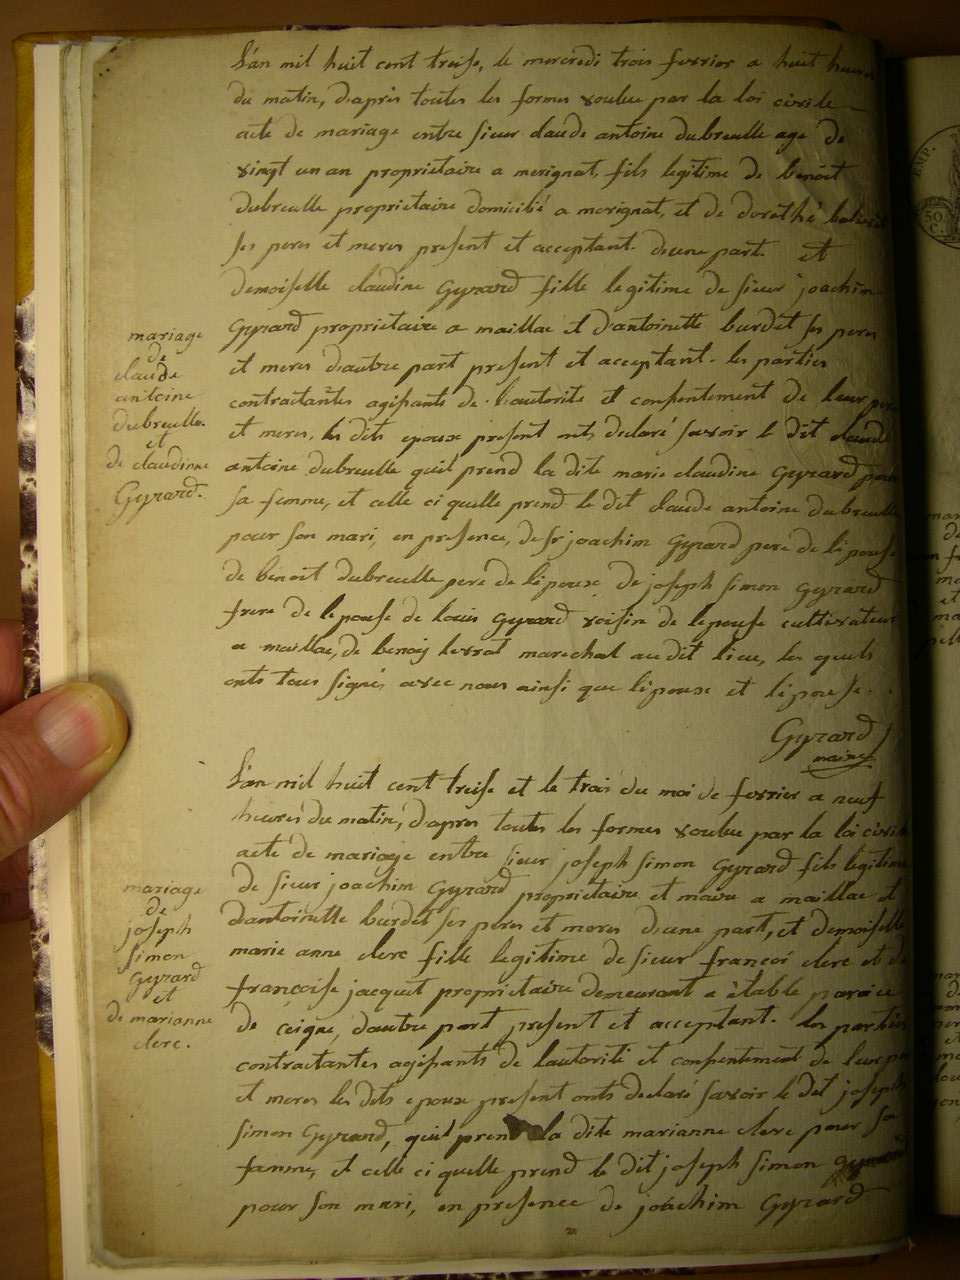 L'an mil huit cent treise, le mercredi trois fevrier a huit heures
du matin, d'apris toutes les formes voulue par la loi civile
acte de mariage entre sieur claude antoine dubreulle age de
vingt un an proprietaire a merignat, fils legitime de benoit
dubreulle proprietaire domicilié a merignat, et de dorothé
ses peres et meres present et acceptant. d'une part. et
demoiselle claudine Gyrard fille legitime de sieur joachim
Gyrard proprietaire a maillac et d'antoinette burdet ses peres
et meres d'autre part present et acceptant. les parties
contractantes agissants de l'autorite et consentement de leur pere
et meres, les dits epoux present onts declaré savoir le dit claude
antoine dubreulle qu'il prend la dite marie claudine Gyrard pour
sa femme, et celle ci quelle prend le dit claude antoine dubreulle
pour son mari, en presence, de sr joachim Gyrard pere de l'epouse
de benoit dubreuelle pere de l'epoux, de joseph simon Gyrard
frere de l'epouse de louis Gyrard voisin de lepouse cultivateur
a maillac, de benoit levrat marechal au dit lieu, les quels
onts tous signés avec nous ainsi que l'epoux et l'epouse.
Gyrard
maire
mariage
de
claude
antoine
dubreulle.
et
de claudinne
Gyrard.
L'an mil huit cent treise et le trois du moi de fevrier a neuf
heures du matin, d'apres toutes les formes voulue par la loi civile
acte de mariage entre sieur joseph simon Gyrard fils legitime
de sieur joachim Gyrard proprietaire et maire a maillac et
d'antoinette burdet ses peres et meres d'une part, et demoiselle
marie anne clerc fille legitime de sieur françoi clerc et de
françoise jacquet proprietaire demeurant a étable paroice
de ceigne, d'autre part present et acceptant. les parties
contractantes agissants de lautorité et consentement de leur pere
et meres les dits epoux present onts declaré savoir le dit joseph
simon Gyrard, qu'il prend la dite marianne clerc pour sa
famme, et celle ci quelle prend le dit joseph simon gyrard
pour son mari, en presence de joachim Gyrard
mariage
de
joseph
simon
Gyrard
et
de marianne
clerc.
EMP.
50
C.